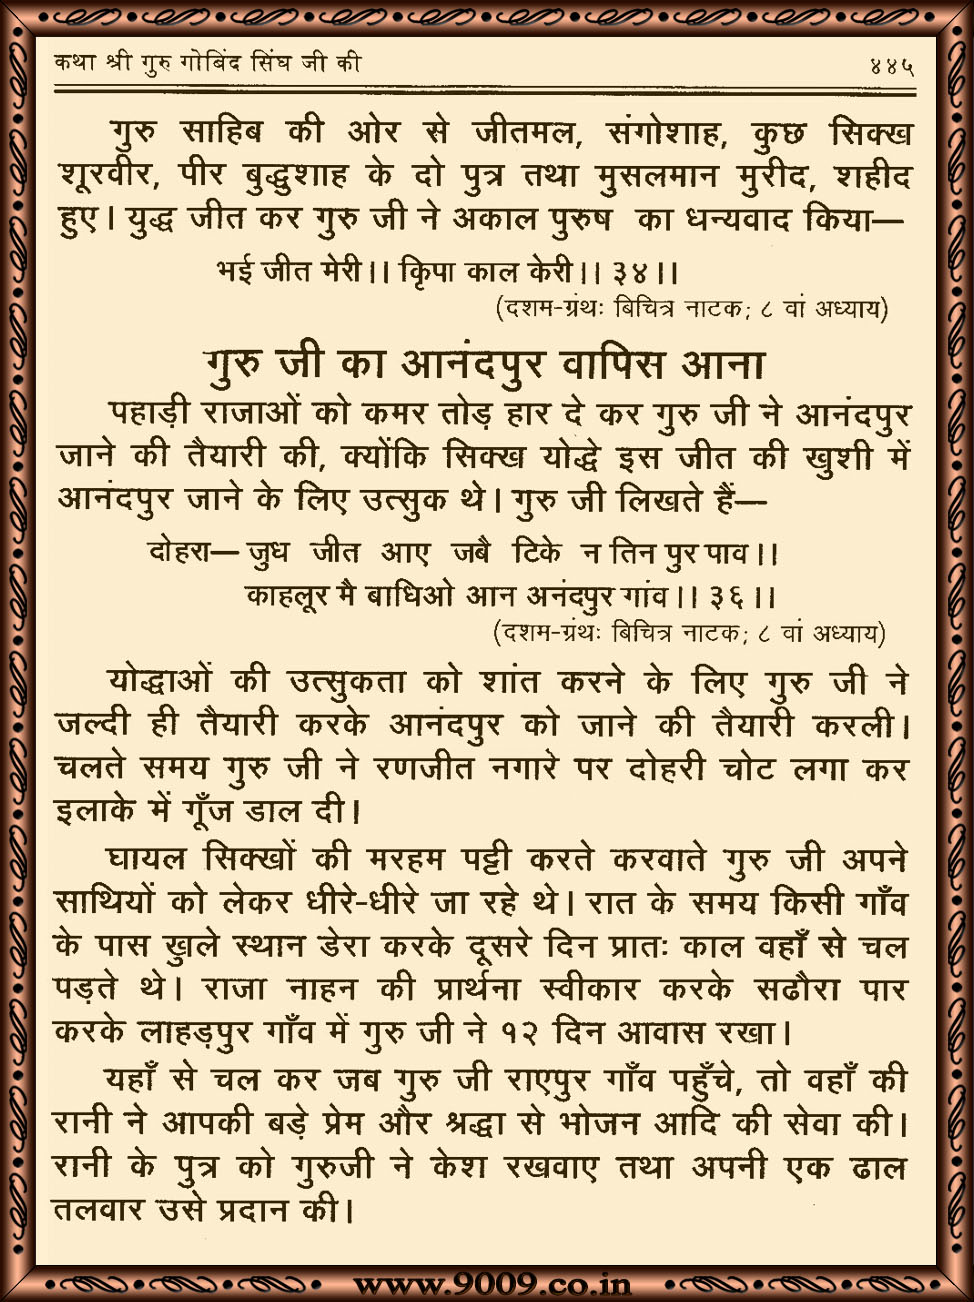 कथा श्री गुरु गोबिंद सिंघ जी की ४४५
गुरु साहिब की ओर से जीतमल, संगोशाह, कुछ सिक्ख
शूरवीर, पीर बुद्धुशाह के दो पुत्र तथा मुसलमान मुरीद, शहीद
हुए। युद्ध जीत कर गुरु जी ने अकाल पुरुष का धन्यवाद किया—
भई जीत मेरी।। क्रिपा काल केरी।। ३४।।
(दशम-ग्रंथः बिचित्र नाटक; ८ वां अध्याय)
गुरु जी का आनंदपुर वापिस आना
पहाड़ी राजाओं को कमर तोड़ हार दे कर गुरु जी ने आनंदपुर
जाने की तैयारी की, क्योंकि सिक्ख योद्धे इस जीत की खुशी में
आनंदपुर जाने के लिए उत्सुक थे। गुरु जी लिखते हैं—
दोहरा— जुध जीत आए जबै टिके न तिन पुर पाव।।
काहलूर मै बाधिओ आन अनंदपुर गांव।। ३६।।
(दशम-ग्रंथः बिचित्र नाटक; ८ वां अध्याय)
योद्धाओं की उत्सुकता को शांत करने के लिए गुरु जी ने
जल्दी ही तैयारी करके आनंदपुर को जाने की तैयारी करली।
चलते समय गुरु जी ने रणजीत नगारे पर दोहरी चोट लगा कर
इलाके में गूँज डाल दी।
घायल सिक्खों की मरहम पट्टी करते करवाते गुरु जी अपने
साथियों को लेकर धीरे-धीरे जा रहे थे। रात के समय किसी गाँव
के पास खुले स्थान डेरा करके दूसरे दिन प्रातः काल वहाँ से चल
पड़ते थे। राजा नाहन की प्रार्थना स्वीकार करके सढौरा पार
करके लाहड़पुर गाँव में गुरु जी ने १२ दिन आवास रखा।
यहाँ से चल कर जब गुरु जी राएपुर गाँव पहुँचे, तो वहाँ की
रानी ने आपकी बड़े प्रेम और श्रद्धा से भोजन आदि की सेवा की।
रानी के पुत्र को गुरुजी ने केश रखवाए तथा अपनी एक ढाल
तलवार उसे प्रदान की।
www.9009.co.in